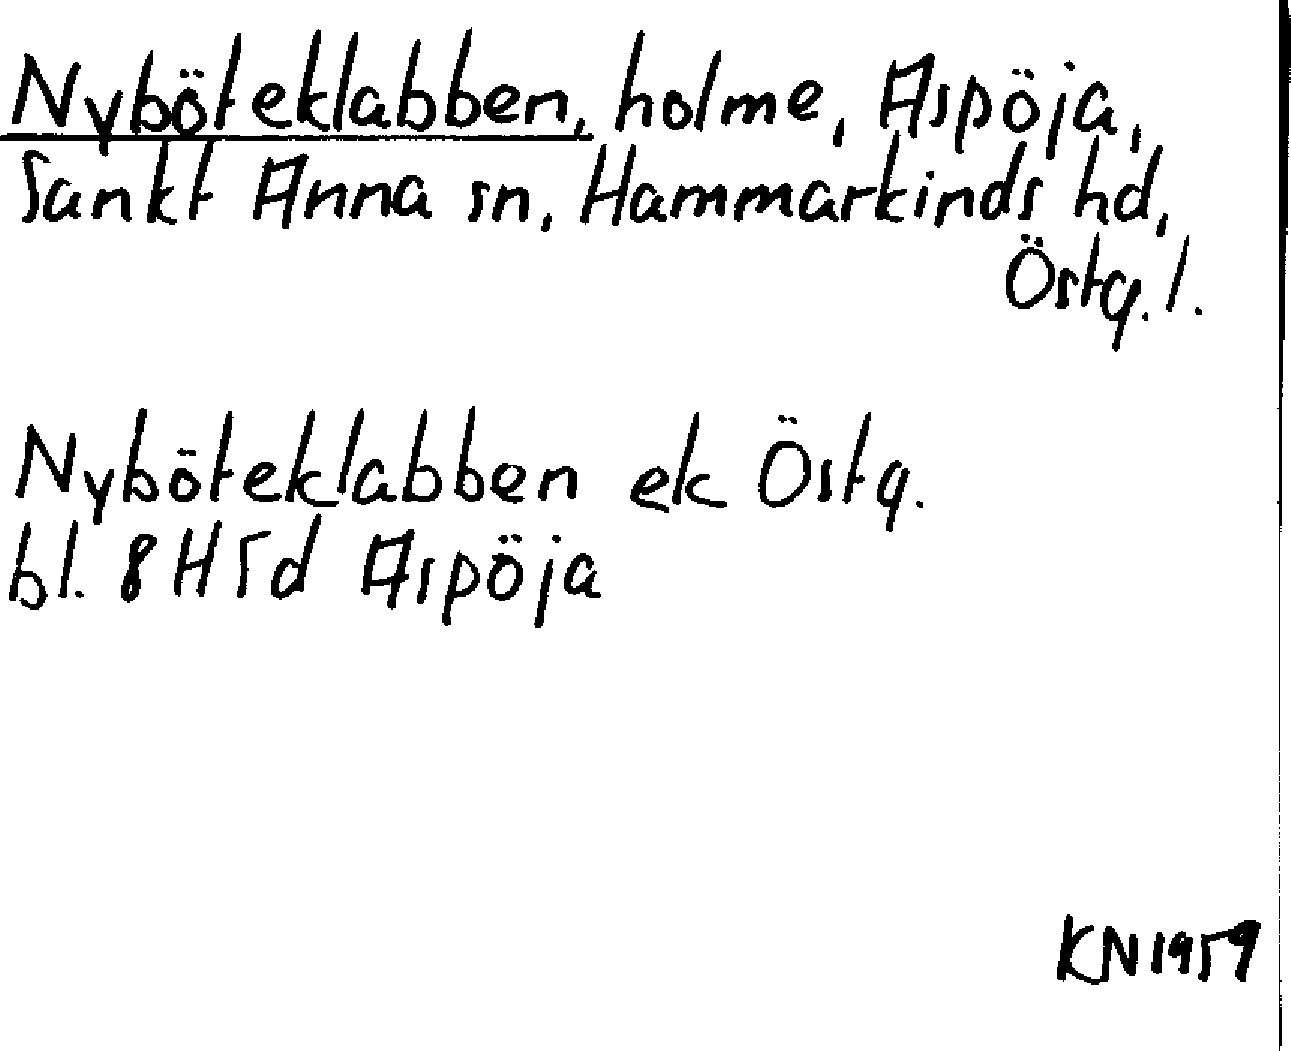 Nyböteklabben, holme, Aspöja,
Sankt Anna sn, Hammarkinds hd,
Östg. l.
Nyböteklabben ek Östg.
bl. 8H5d Aspöja
KN 1959